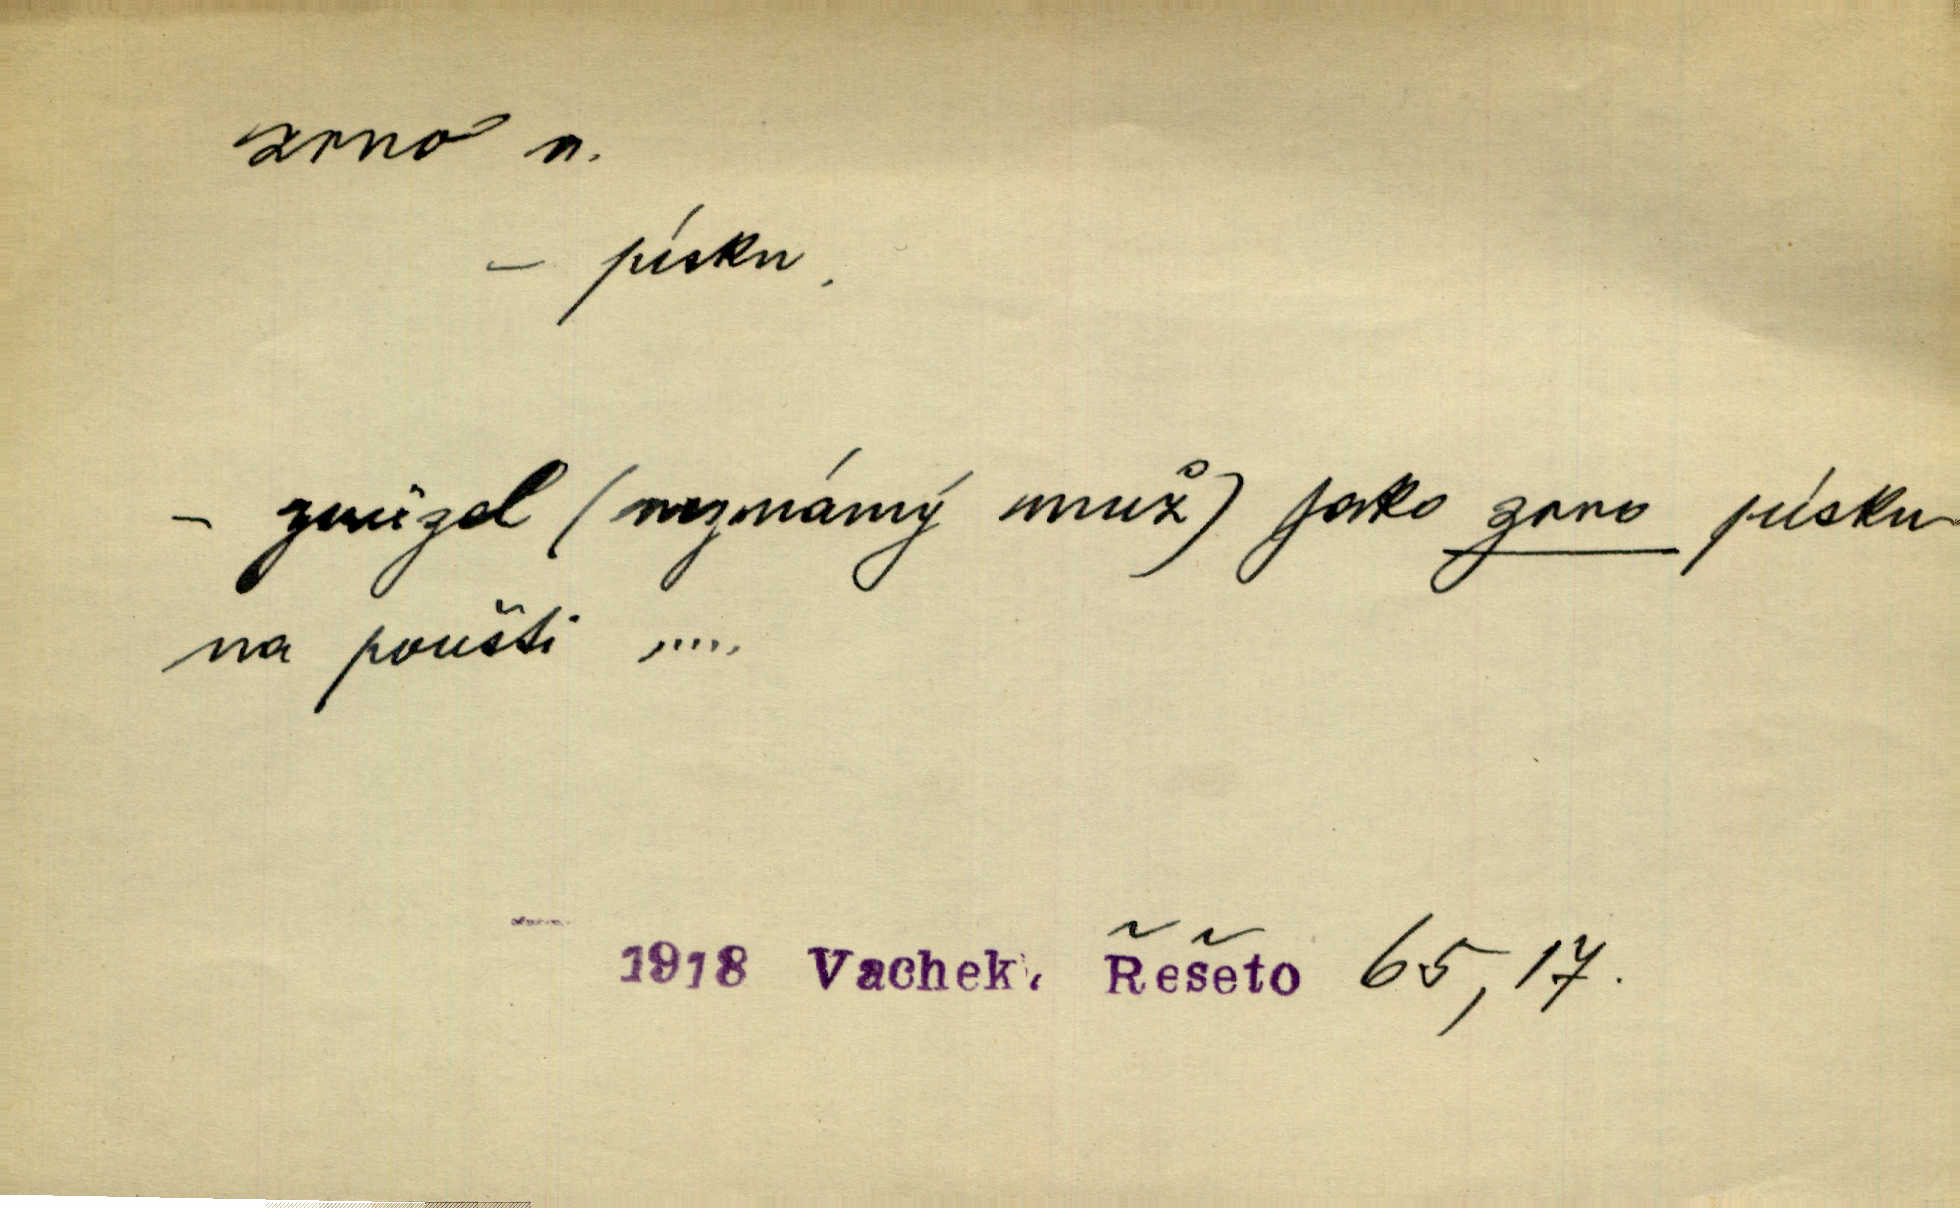 zrno n.
– písku.
– zmizel (neznámý muž) jako zrno písku
na poušti .....
1918 Vachek. Řešeto 65,17.